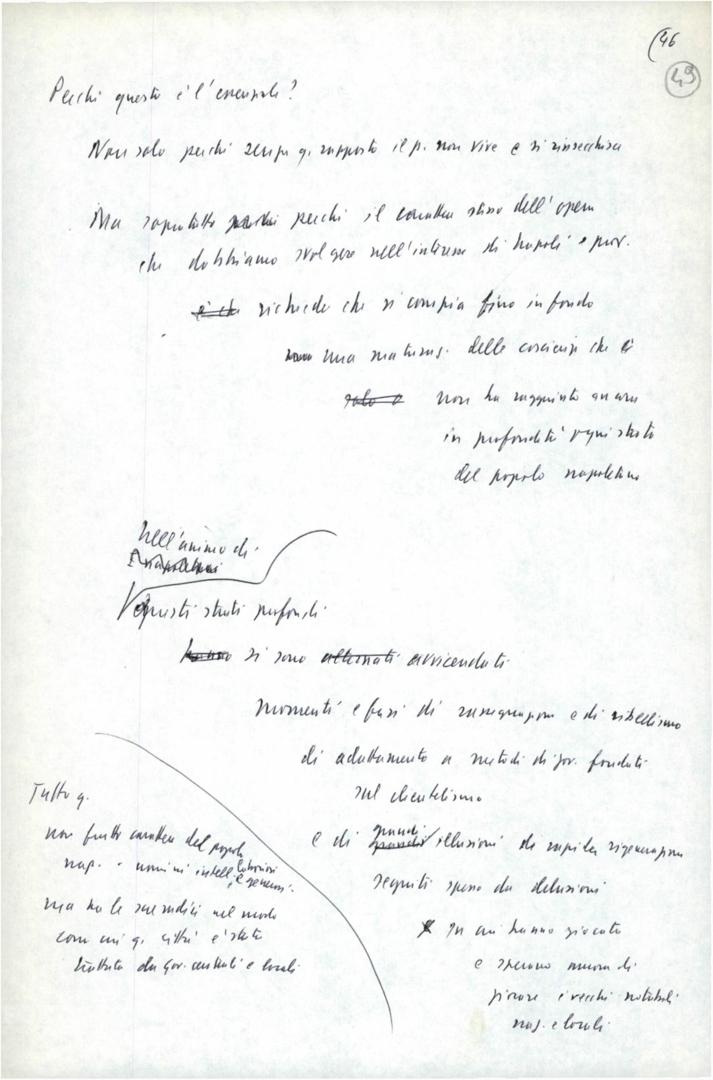 (46
49
Perché questo è l'essenziale?
Non solo perché senza q. rapporto il p. non vive e si rinsecchisce
Ma soprattutto perché perché il carattere stesso dell'opera
che dobbiamo svolgere nell'interesse di Napoli e prov.
è che richiede che si compia fino in fondo
una maturaz. delle coscienze che è
solo o non ha raggiunto ancora
in profondità ogni strato
del popolo napoletano
Nell'animo di
questi strati profondi
hanno si sono alternati avvicendati
momenti e fasi di rassegnazione e di ribellismo
di adattamento a metodi di gov. fondati
sul clientelismo
e di grandi illusioni di rapida rigenerazione
seguiti spesso da delusioni
su cui hanno giocato
e sperano ancora di
giocare i vecchi notabili
naz. e locali
Tutto q.
non frutto carattere del popolo
nap. - uomini intell. laboriosi
e generosi.
ma ha le sue radici nel modo
con cui q. città è stata
trattata da gov. centrali e locali